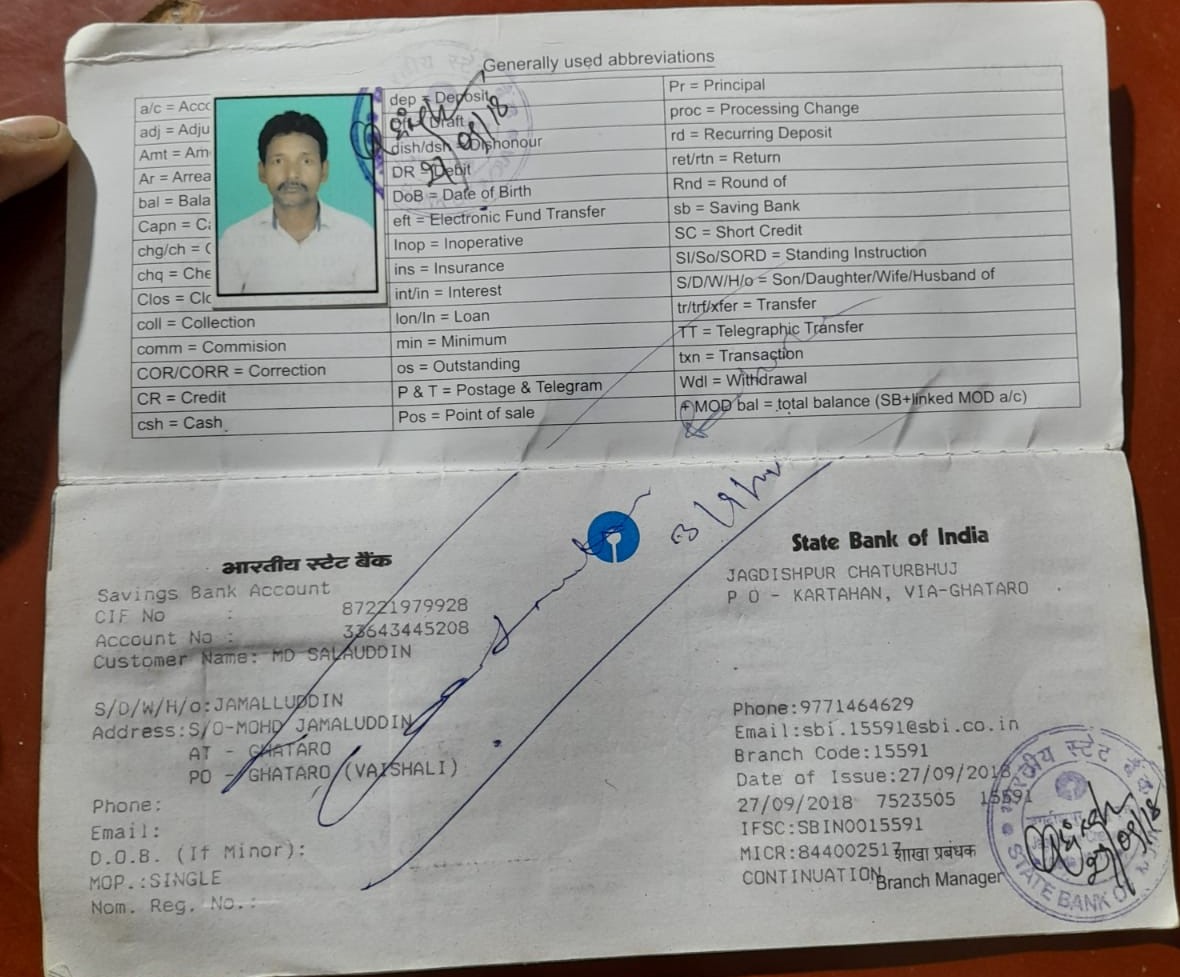 Generally used abbreviations
a/c = Acco
adj = Adju
Amt = Am
Ar = Arrea
bal = Bala
Capn = Ca
chg/ch = C
chq = Che
Clos = Clo
coll = Collection
comm = Commision
COR/CORR = Correction
CR = Credit
csh = Cash
dep = Deposit
Draft
dish/dsh = Dishonour
DR = Debit
DoB = Date of Birth
eft = Electronic Fund Transfer
Inop = Inoperative
ins = Insurance
int/in = Interest
lon/ln = Loan
min = Minimum
os = Outstanding
P & T = Postage & Telegram
Pos = Point of sale
Pr = Principal
proc = Processing Change
rd = Recurring Deposit
ret/rtn = Return
Rnd = Round of
sb = Saving Bank
SC = Short Credit
SI/So/SORD = Standing Instruction
S/D/W/H/o = Son/Daughter/Wife/Husband of
tr/trf/xfer = Transfer
TT = Telegraphic Transfer
txn = Transaction
Wdl = Withdrawal
+ MOD bal = total balance (SB+linked MOD a/c)
27/09/18
भारतीय स्टेट बैंक
Savings Bank Account
CIF No : 87221979928
Account No : 33643445208
Customer Name: MD SALAUDDIN
S/D/W/H/o:JAMALLUDDIN
Address:S/O-MOHD JAMALUDDIN
AT - GHATARO
PO - GHATARO (VAISHALI)
Phone:
Email:
D.O.B. (If Minor):
MOP.:SINGLE
Nom. Reg. No.:
State Bank of India
JAGDISHPUR CHATURBHUJ
P O - KARTAHAN, VIA-GHATARO
Phone:9771464629
Email:sbi.15591@sbi.co.in
Branch Code:15591
Date of Issue:27/09/2018
27/09/2018 7523505 15591
IFSC:SBIN0015591
MICR:844002517
शाखा प्रबंधक
CONTINUATION
Branch Manager
भारतीय स्टेट बैंक
STATE BANK OF
27/09/18